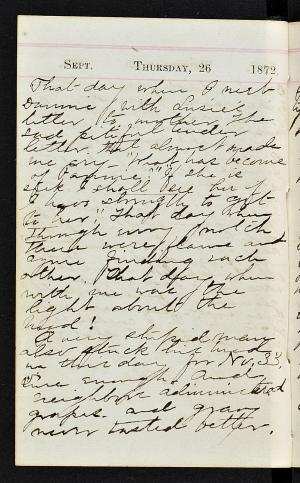 Sept. Thursday, 26 1872.
That day when I meet
Dannie with Susie's
letter to mother. The
sad pitiful tender
letter that almost made
me cry. "What has become
of Fannie?" "If she is
sick I shall see her if
I have strength to get
to her." That day when
through every notch
there were flaws and
each other. That day when
with me was the
light about the
head!
A very stupid man
also stuck his head
in this day for No. 33,
and
neighbor administered
grapes and gray
never tasted better.